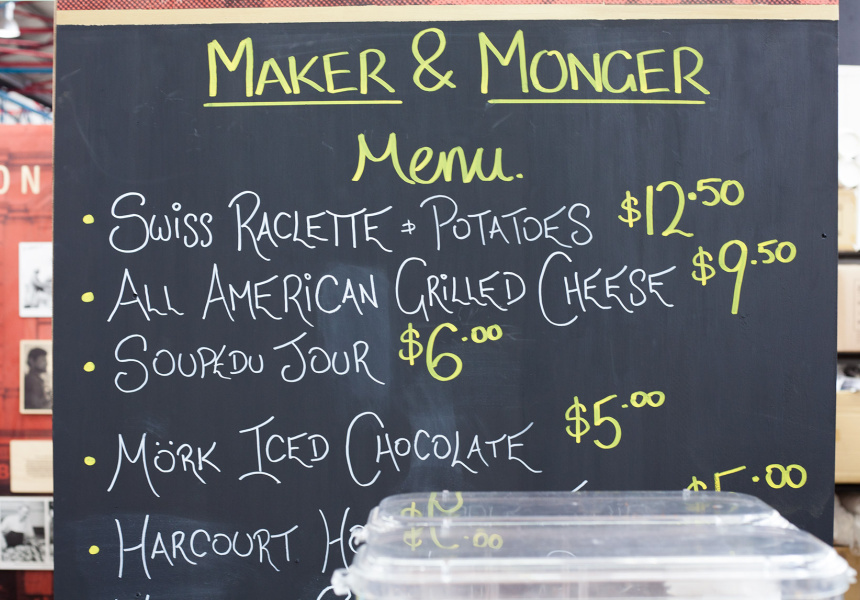 MAKER & MONGER
Menu.
• SWiSS RACLETTE & POTATOES $12.50
• ALL AMERiCAN GRiLLED CHEESE $9.50
• SOUPE DU JOUR $6.00
• MÖRK ICED CHOCOLATE $5.00
• HARCOURT
ON